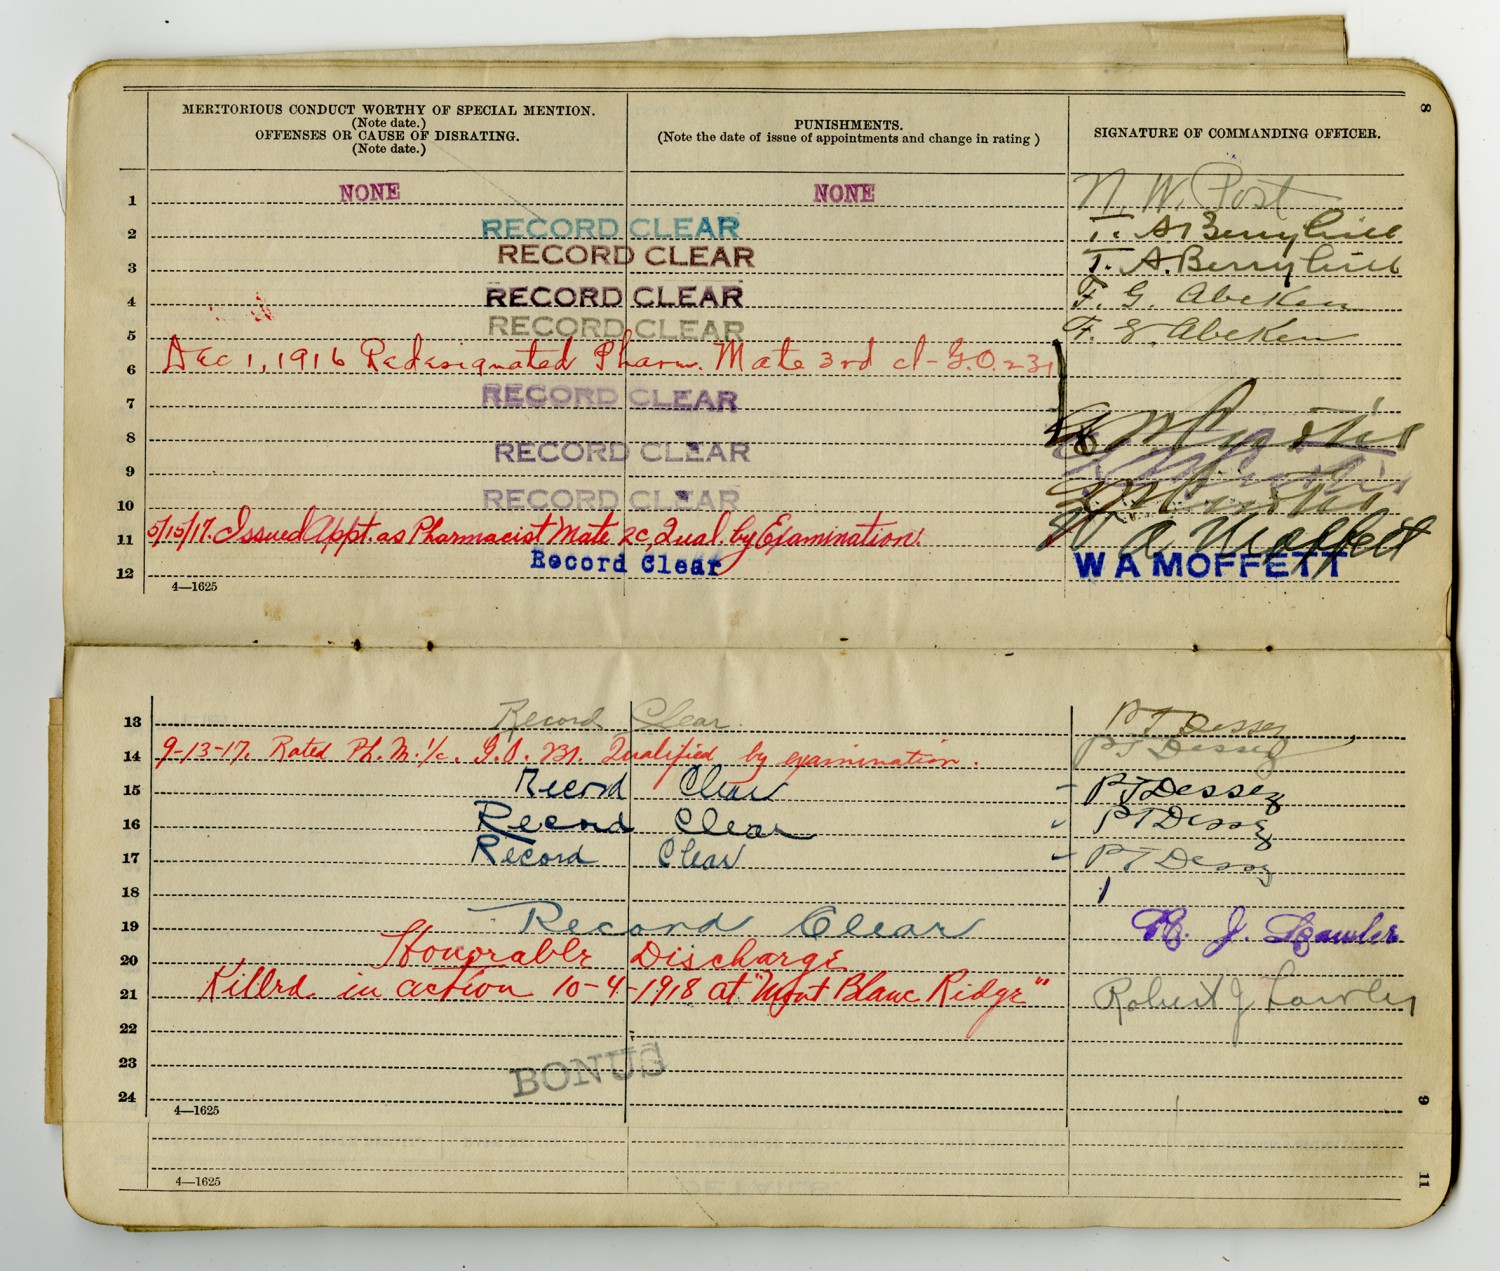 8
MERITORIOUS CONDUCT WORTHY OF SPECIAL MENTION.
(Note date.)
OFFENSES OR CAUSE OF DISRATING.
(Note date.)
PUNISHMENTS.
(Note the date of issue of appointments and change in rating )
SIGNATURE OF COMMANDING OFFICER.
1 NONE NONE N. W. Post
2 RECORD CLEAR T. A. Berryhill
3 RECORD CLEAR T. A. Berryhill
4 RECORD CLEAR F. G. Abeken
5 RECORD CLEAR F. G. Abeken
6 Dec 1, 1916 Redesignated Pharm. Mate 3rd cl - G.O. 231
7 RECORD CLEAR
8 RECORD CLEAR
9
10 RECORD CLEAR
11 5/15/17. Issued Appt. as Pharmacist Mate 2c, Qual. by Examination. W A Moffett
12 Record Clear W A MOFFETT
4—1625
13 Record Clear P T Dessez
14 9-13-17. Rated Ph. M. 1/c. G.O. 231. Qualified by examination. P T Dessez
15 Record Clear - P T Dessez
16 Record Clear P T Dessez
17 Record Clear - P T Dessez
18
19 Record Clear R. J. Lawler
20 Honorable Discharge
21 Killed in action 10-4-1918 at "Mont Blanc Ridge" Robert J Lawler
22
23 BONUS
24
4—1625
9
4—1625
11